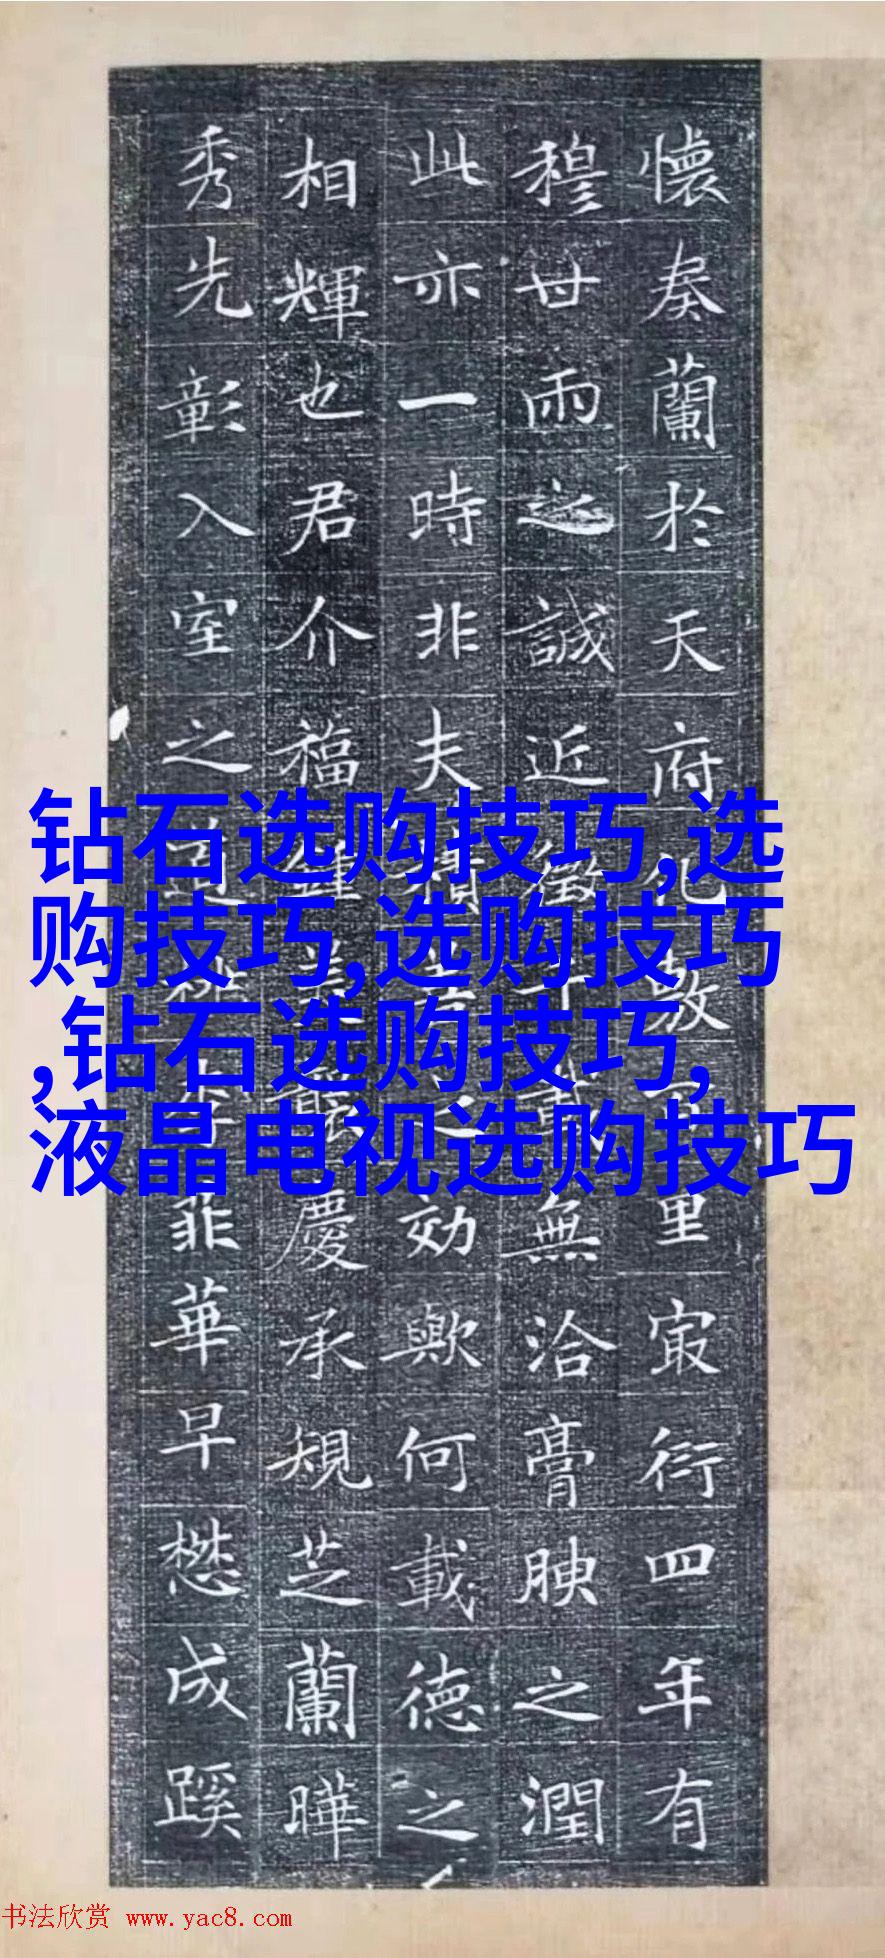 懷奏蘭於天府化敷里冣衍四年有
穆世雨之誠近徵無洽膏腴之潤
此亦一時非夫積善之効歟何載德之
相輝也君介福鍾慶承規芝蘭曄
秀先彰入室之道桃李菲華早懋成蹊
钻石选购技巧,选
购技巧,选购技巧
,钻石选购技巧,
液晶电视选购技巧
书法欣赏 www.yac8.com